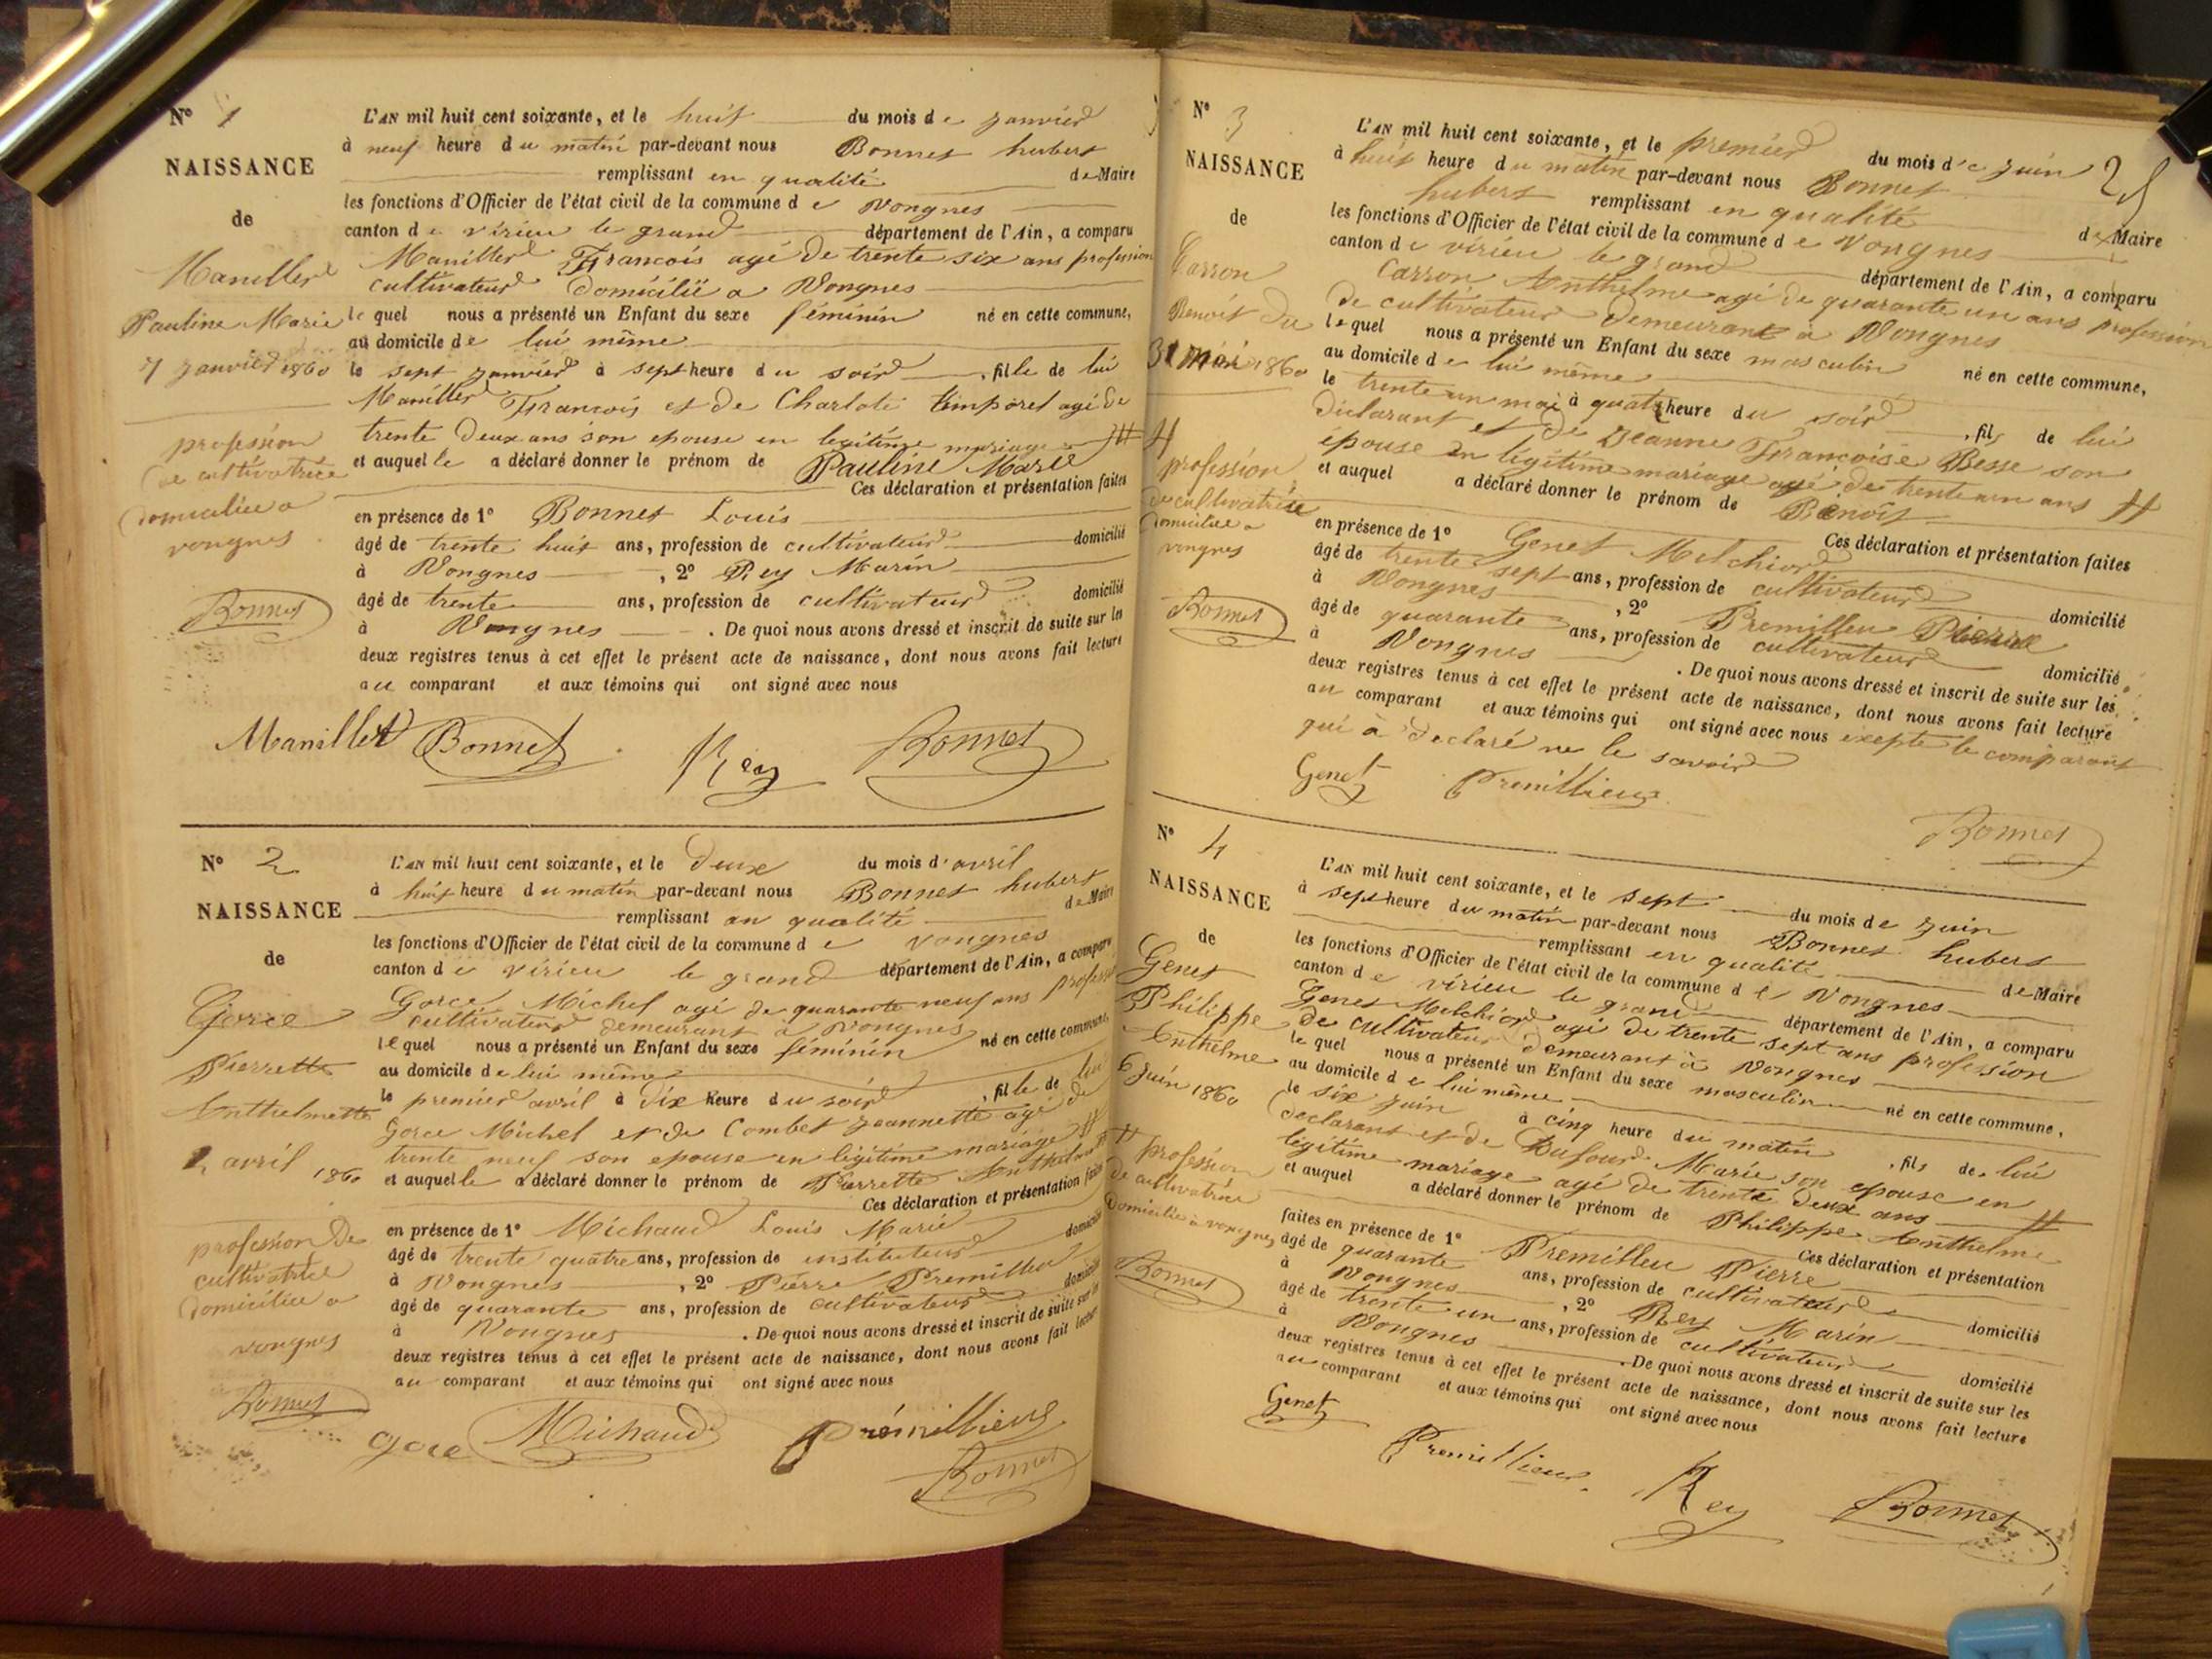 N° 1
NAISSANCE
de
Maniller
Pauline Marie
7 janvier 1860
profession
de cultivatrice
domiciliee a
vongnes
Bonnet
L'AN mil huit cent soixante, et le huit du mois de janvier
à neuf heure du matin par-devant nous Bonnet hubert
remplissant en qualité de Maire
les fonctions d'Officier de l'état civil de la commune de Vongnes
canton de virieu le grand département de l'Ain, a comparu
Maniller François agé de trente six ans profession
cultivateur domicilié a Vongnes
lequel nous a présenté un Enfant du sexe féminin né en cette commune,
au domicile de lui même
le sept janvier à sept heure du soir, fille de lui
Maniller François et de Charlote temporel agé de
trente deux ans son epouse en legitime mariage #
et auquelle a déclaré donner le prénom de Pauline Marie
Ces déclaration et présentation faites
en présence de 1° Bonnet Louis
âgé de trente huit ans, profession de cultivateur domicilié
à Vongnes, 2° Rey Marin
âgé de trente ans, profession de cultivateur domicilié
à Vongnes. De quoi nous avons dressé et inscrit de suite sur les
deux registres tenus à cet effet le présent acte de naissance, dont nous avons fait lecture
au comparant et aux témoins qui ont signé avec nous
Maniller Bonnet Rey Bonnet
N° 2
NAISSANCE
de
Gorce
Pierrette
Anthelmette
avril 1860
profession de
cultivatrice
domiciliee a
vongnes
Bonnet
L'AN mil huit cent soixante, et le deux du mois d'avril
à huit heure du matin par-devant nous Bonnet hubert
remplissant an qualité de Maire
les fonctions d'Officier de l'état civil de la commune de vongnes
canton de virieu le grand département de l'Ain, a comparu
Gorce Michel agé de quarante neuf ans profession
cultivateur demeurant à Vongnes
lequel nous a présenté un Enfant du sexe féminin né en cette commune,
au domicile de lui même
le premier avril à dix heure du soir, fille de lui
Gorce Michel et de Combet jeannette agé de
trente neuf son epouse en légitime mariage #
et auquelle a déclaré donner le prénom de Pierrette Anthelmette
Ces déclaration et présentation faites
en présence de 1° Michaud Louis Marie
âgé de trente quatre ans, profession de instituteur domicilié
à Vongnes, 2° Pierre Premillieu
âgé de quarante ans, profession de cultivateur domicilié
à Vongnes. De quoi nous avons dressé et inscrit de suite sur les
deux registres tenus à cet effet le présent acte de naissance, dont nous avons fait lecture
au comparant et aux témoins qui ont signé avec nous
Michaud Prémillieux
Bonnet
N° 3
NAISSANCE
de
Carron
Benoit Du
31 mai 1860
#
profession
de cultivatrice
domiciliee a
vongnes
Bonnet
25
L'AN mil huit cent soixante, et le premier du mois de juin
à huit heure du matin par-devant nous Bonnet
hubert remplissant en qualité de Maire
les fonctions d'Officier de l'état civil de la commune de Vongnes
canton de virieu le grand département de l'Ain, a comparu
Carron Anthelme agé de quarante un ans profession
de cultivateur demeurant à Vongnes
lequel nous a présenté un Enfant du sexe masculin né en cette commune,
au domicile de lui même
le trente un mai à quatre heure du soir, fils de lui
déclarant et de Jeanne Françoise Besse son
épouse en légitime mariage agé de trente un ans #
et auquel a déclaré donner le prénom de Benoit
Ces déclaration et présentation faites
en présence de 1° Genet Melchior
âgé de trente sept ans, profession de cultivateur domicilié
à Vongnes, 2° Premillieu Pierre
âgé de quarante ans, profession de cultivateur domicilié
à Vongnes. De quoi nous avons dressé et inscrit de suite sur les
deux registres tenus à cet effet le présent acte de naissance, dont nous avons fait lecture
au comparant et aux témoins qui ont signé avec nous exepté le comparant
qui à déclaré ne le savoir
Genet Premillieux
Bonnet
N° 4
NAISSANCE
de
Genet
Philippe
Anthelme
6 juin 1860
#
profession
de cultivatrice
Domiciliée à vongnes
Bonnet
L'AN mil huit cent soixante, et le sept du mois de juin
à sept heure du matin par-devant nous Bonnet hubert
remplissant en qualité de Maire
les fonctions d'Officier de l'état civil de la commune de Vongnes
canton de virieu le grand département de l'Ain, a comparu
Genet Melchior agé de trente sept ans profession
de cultivateur demeurant à Vongnes
lequel nous a présenté un Enfant du sexe masculin né en cette commune,
au domicile de lui même
le six juin à cinq heure du matin, fils de lui
déclarant et de Dufour Marie son epouse en
légitime mariage agé de trente deux ans #
et auquel a déclaré donner le prénom de Philippe Anthelme
Ces déclaration et présentation
faites en présence de 1° Premillieu Pierre
âgé de quarante ans, profession de cultivateur domicilié
à Vongnes, 2° Rey Marin
âgé de trente un ans, profession de cultivateur domicilié
à Vongnes. De quoi nous avons dressé et inscrit de suite sur les
deux registres tenus à cet effet le présent acte de naissance, dont nous avons fait lecture
au comparant et aux témoins qui ont signé avec nous
Genet
Premillieux Rey Bonnet